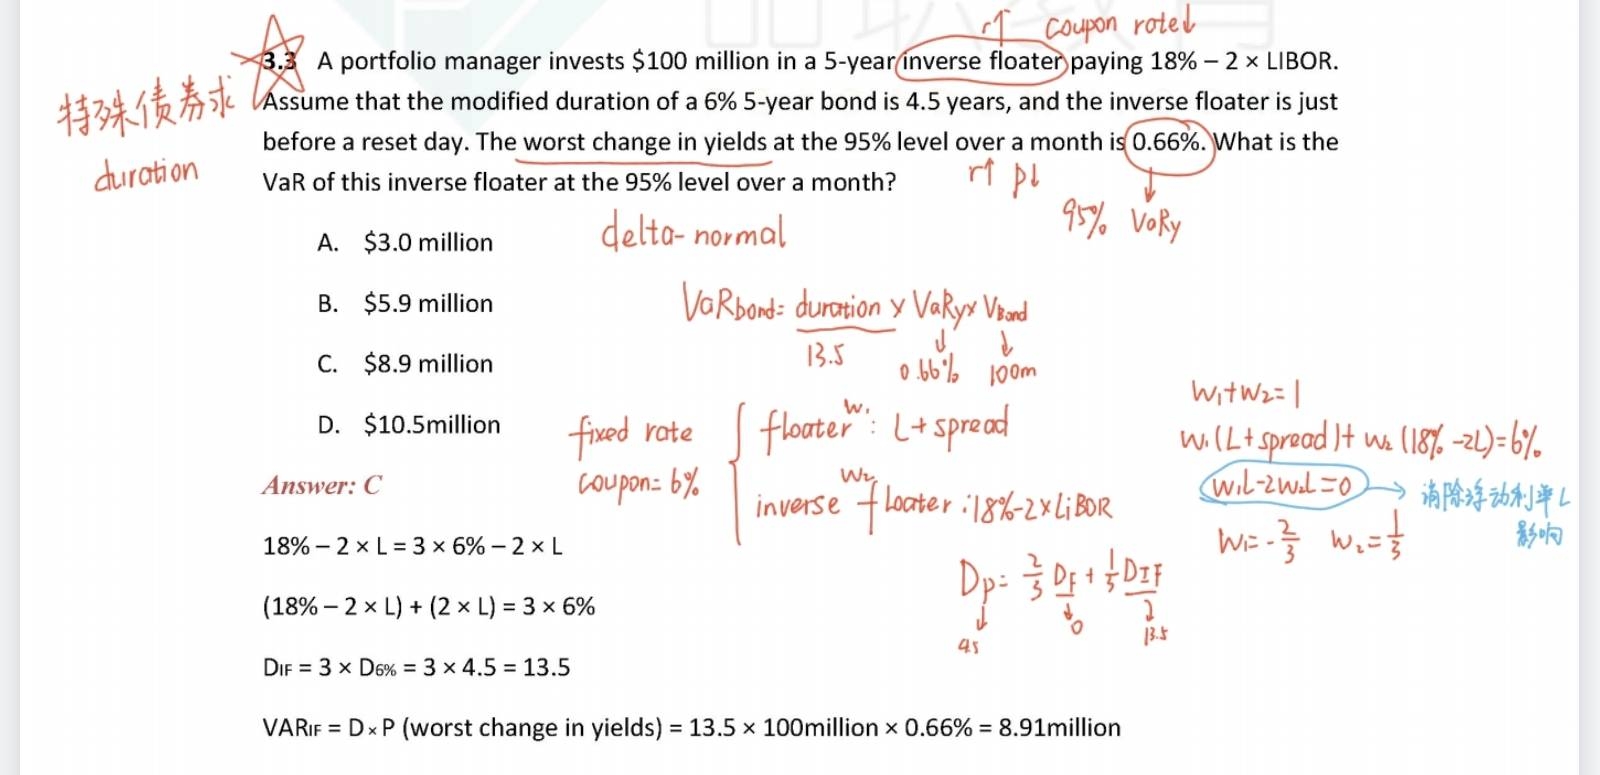 r↑ coupon rate↓
3.3 A portfolio manager invests $100 million in a 5-year inverse floater paying 18% – 2 × LIBOR.
特殊债券求
duration
Assume that the modified duration of a 6% 5-year bond is 4.5 years, and the inverse floater is just
before a reset day. The worst change in yields at the 95% level over a month is 0.66%. What is the
VaR of this inverse floater at the 95% level over a month?
r↑ p↓
95% VaRy
A. $3.0 million
delta-normal
B. $5.9 million
VaRbond= duration × VaRy× VBond
C. $8.9 million
13.5 0.66% 100m
D. $10.5million
fixed rate
coupon= 6%
floater W1 : L+ spread
inverse floater W2 : 18%-2×LiBOR
W1+W2=1
W1(L+spread)+ W2(18%-2L)=6%
W1L-2W2L=0 → 消除浮动利率L
影响
W1= 2/3 W2= 1/3
Answer: C
18% – 2 × L = 3 × 6% – 2 × L
Dp= 2/3 DF + 1/3 DIF
(18% – 2 × L) + (2 × L) = 3 × 6%
4.5 0 13.5
DIF = 3 × D6% = 3 × 4.5 = 13.5
VARIF = D × P (worst change in yields) = 13.5 × 100million × 0.66% = 8.91million